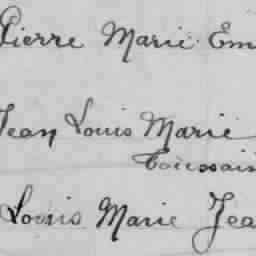 Pierre Marie Em
Jean Louis Marie
Toussain
Louis Marie Jea